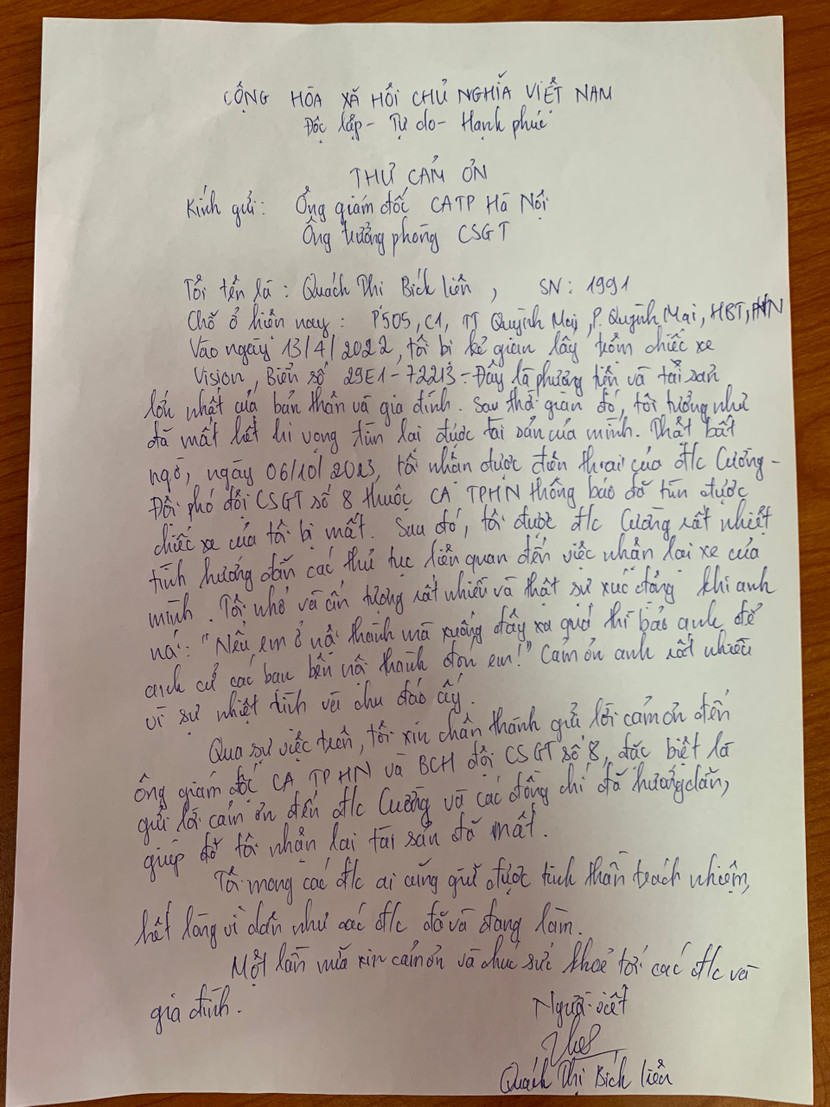 CỘNG HÒA XÃ HỘI CHỦ NGHĨA VIỆT NAM
Độc lập - Tự do - Hạnh phúc
THƯ CẢM ƠN
Kính gửi: Ông giám đốc CATP Hà Nội
Ông trưởng phòng CSGT
Tôi tên là: Quách Thị Bích Liên, SN: 1991
Chỗ ở hiện nay: P505, C1, TT Quỳnh Mai, P. Quỳnh Mai, HBT, HN
Vào ngày 13/4/2022, tôi bị kẻ gian lấy trộm chiếc xe
Vision, Biển số 29E1-72213. Đây là phương tiện và tài sản
lớn nhất của bản thân và gia đình. Sau thời gian đó, tôi tưởng như
đã mất hết hi vọng tìm lại được tài sản của mình. Thật bất
ngờ, ngày 06/10/2023, tôi nhận được điện thoại của đ/c Cường -
Đội phó đội CSGT số 8 thuộc CA TPHN thông báo đã tìm được
chiếc xe của tôi bị mất. Sau đó, tôi được đ/c Cường rất nhiệt
tình hướng dẫn các thủ tục liên quan đến việc nhận lại xe của
mình. Tôi nhớ và ấn tượng rất nhiều và thật sự xúc động khi anh
nói: "Nếu em ở nội thành mà xuống đây xa quá thì bảo anh để
anh cử các bạn bên nội thành đón em!" Cảm ơn anh rất nhiều
vì sự nhiệt tình và chu đáo ấy.
Qua sự việc trên, tôi xin chân thành gửi lời cảm ơn đến
ông giám đốc CA TPHN và BCH đội CSGT số 8, đặc biệt là
gửi lời cảm ơn đến đ/c Cường và các đồng chí đã hướng dẫn,
giúp đỡ tôi nhận lại tài sản đã mất.
Tôi mong các đ/c ai cũng giữ được tinh thần trách nhiệm,
hết lòng vì dân như các đ/c đã và đang làm.
Một lần nữa xin cảm ơn và chúc sức khoẻ tới các đ/c và
gia đình.
Người viết
Quách Thị Bích Liên